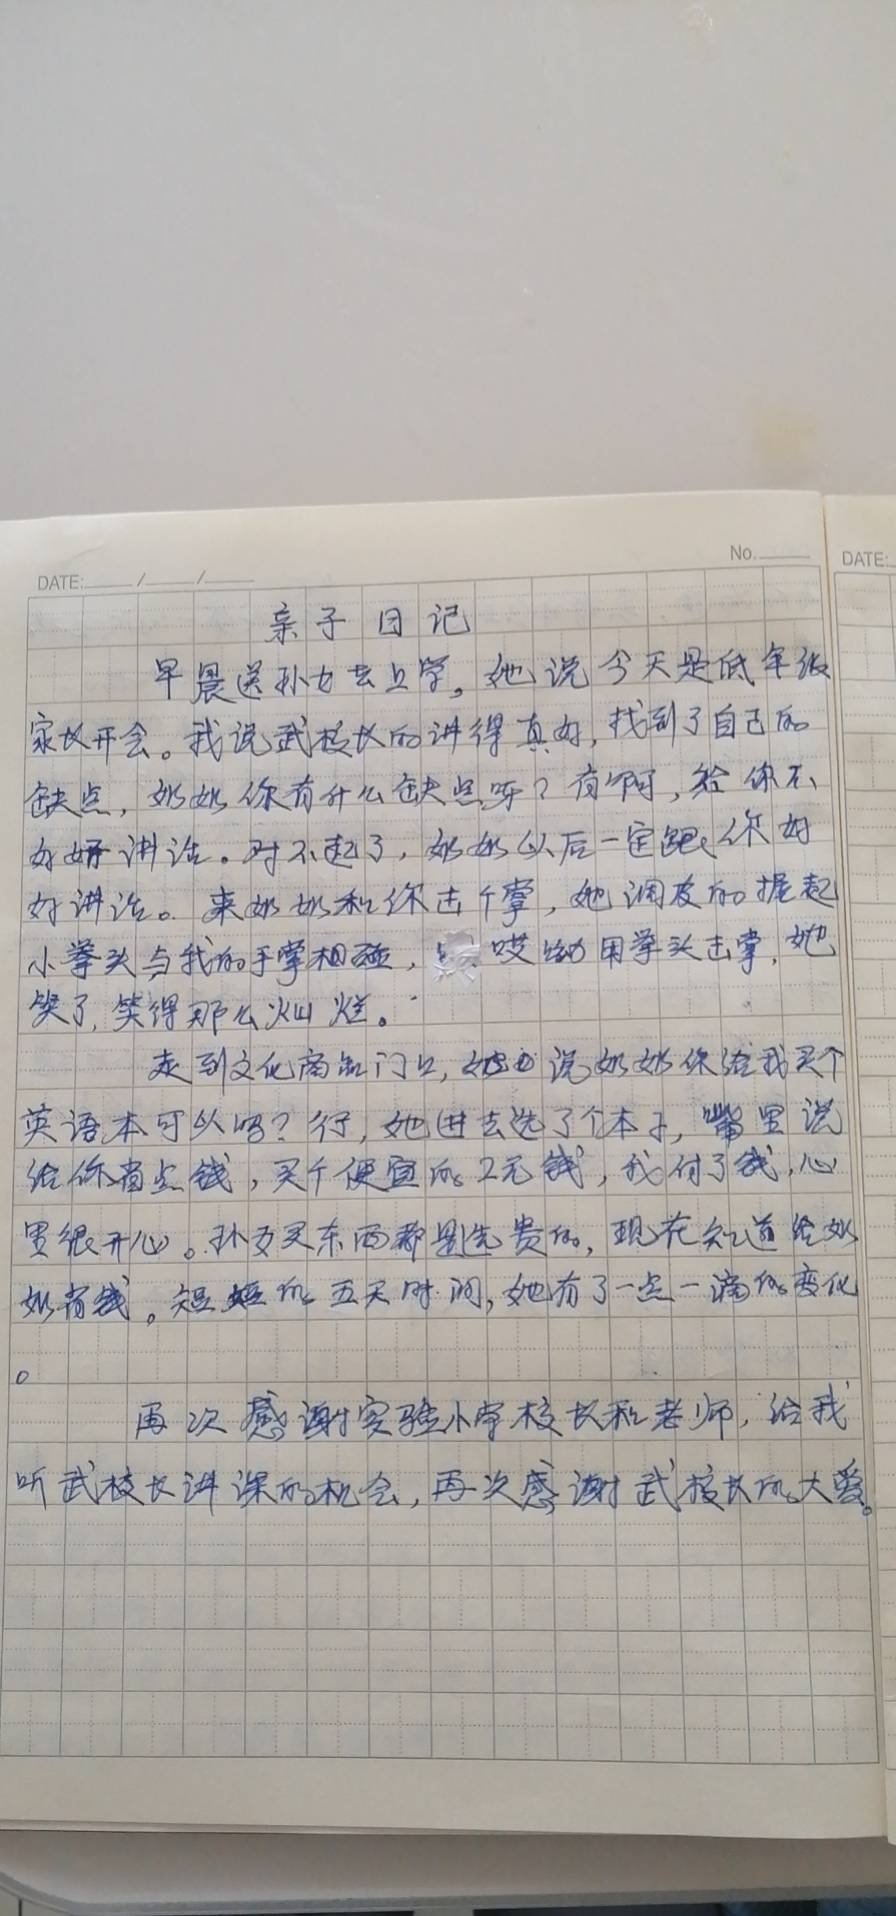 No.
DATE: / /
DATE:
亲子日记
早晨送孙女去上学。她说今天是低年级
家长开会。我说武校长的讲得真好,找到了自己的
缺点,奶奶你有什么缺点呀?有啊,给你不
好好讲话。对不起了,奶奶以后一定跟你好
好讲话。来奶奶和你击个掌,她调皮的握起
小拳头与我的手掌相碰,哎呦用拳头击掌,她
笑了,笑得那么灿烂。
走到文化商店门口,她说奶奶你给我买个
英语本可以吗?行,她进去选了个本子,嘴里说
给你省点钱,买个便宜的2元钱,我付了钱,心
里很开心。孙女买东西都是先贵的,现在知道给奶
奶省钱。短短的五天时间,她有了一点一滴的变化
。
再次感谢实验小学校长和老师,给我
听武校长讲课的机会,再次感谢武校长的大爱。